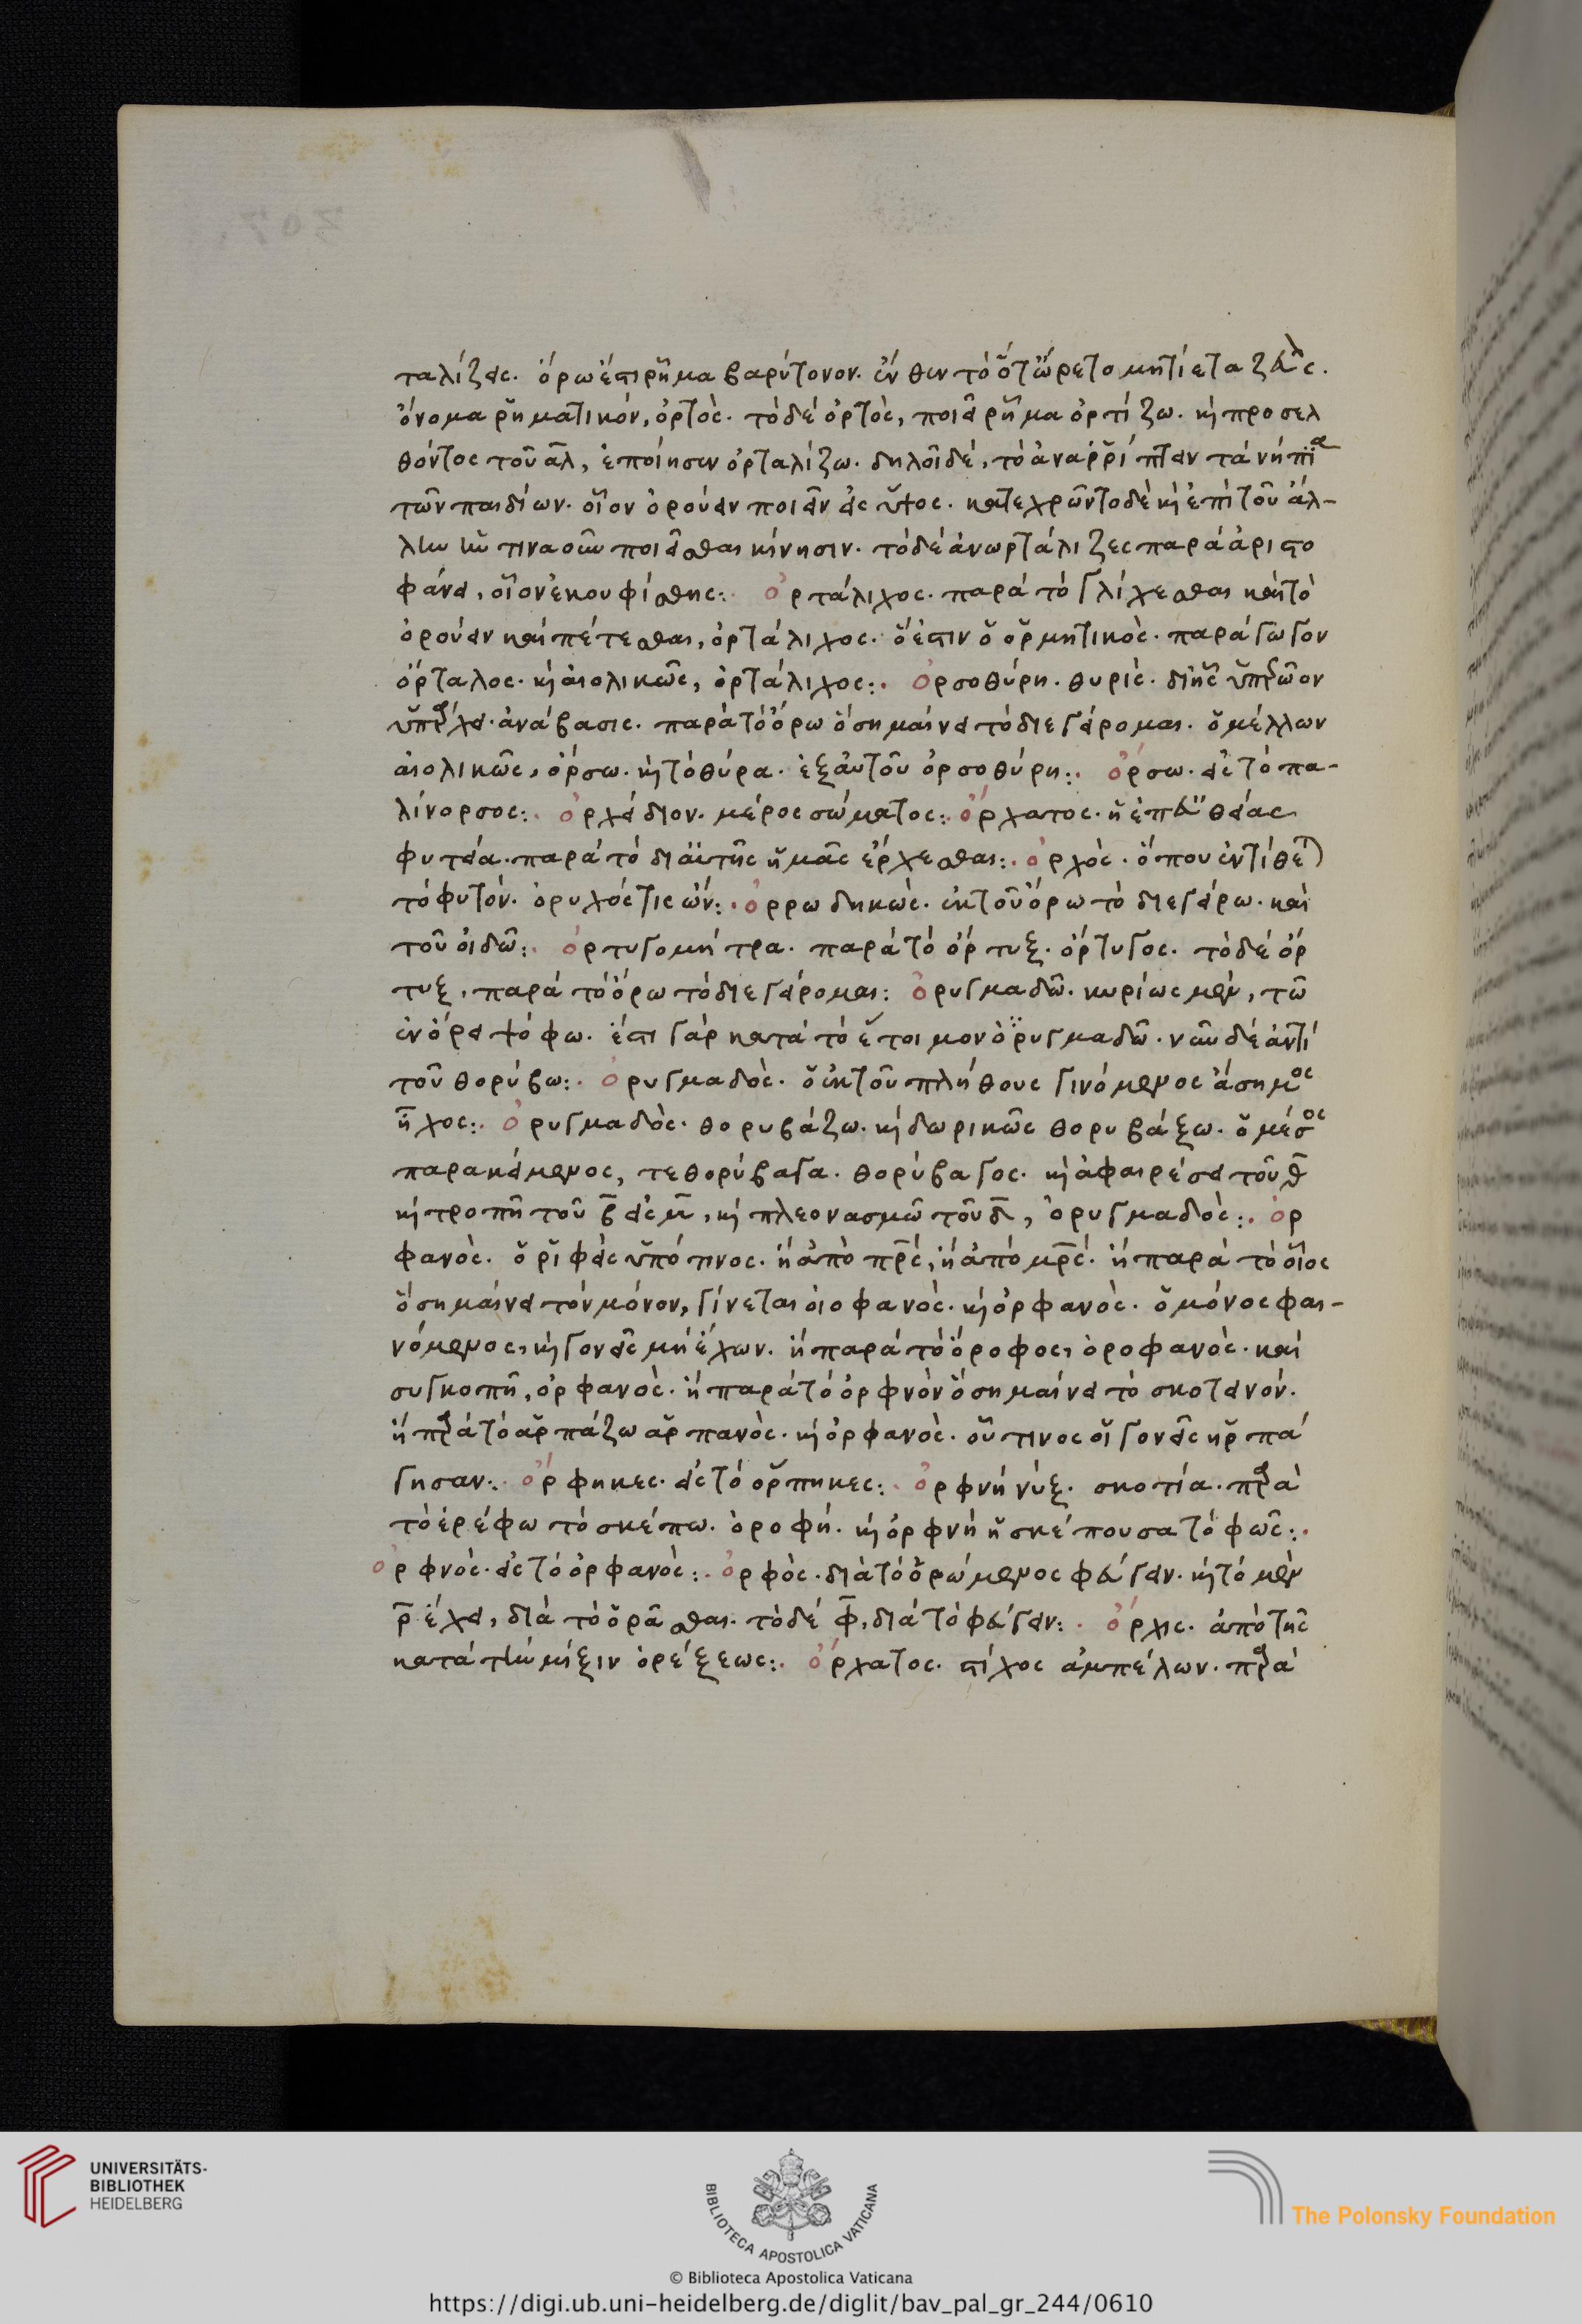 ταλίζεις. ὄρω ἐστι ῥῆμα βαρύτονον. ἔνθεν τὸ ὅτ' ὤρετο μητίετα ζεύς.
ὄνομα ῥηματικόν, ὀρτὸς. τὸ δὲ ὀρτὸς, ποιεῖ ῥῆμα ὀρτίζω. καὶ προσελ
θόντος τοῦ αλ, ἐποίησεν ὀρταλίζω. δηλοῖ δὲ, τὸ ἀναῤῥίπτειν τὰ νήπια
τῶν παιδίων. οἷον ὀρούειν ποιεῖν εἰς ὕψος. κατεχρῶντο δὲ καὶ ἐπὶ τοῦ ἄλ-
λην τινα οὖν ποιεῖσθαι κίνησιν. τὸ δὲ ἀνωρτάλιζες παρὰ ἀριστο
φάνει, οἷον ἐκουφίσθης:. ὀρτάλιχος. παρὰ τὸ γλίχεσθαι καὶ τὸ
ὀρούειν καὶ πέτεσθαι, ὀρτάλιχος. ὅ ἐστιν ὁ ὁρμητικὸς. παράγωγον
ὄρταλος. καὶ αἰολικῶς, ὀρτάλιχος:. ὀρσοθύρη. θυρὶς. δι' ἧς ὑπερῶον
ὑπάρχει ἀνάβασις. παρὰ τὸ ὄρω ὃ σημαίνει τὸ διεγείρομαι. ὁ μέλλων
αἰολικῶς, ὄρσω. καὶ τὸ θύρα. ἐξ αὐτοῦ ὀρσοθύρη:. ὄρσω. εἰς τὸ πα-
λίνορσος:. ὀρχείδιον. μέρος σώματος:. ὄρχατος. ἡ ἐπ' εὐθείας
φυτεία. παρὰ τὸ δι' αὐτῆς ἡμᾶς ἔρχεσθαι:. ὀρχὸς. ὅπου ἐντίθεται
τὸ φυτόν. ὀρυχός τις ὤν:. ὀρρωδηκὼς. ἐκ τοῦ ὄρω τὸ διεγείρω. καὶ
τοῦ οἰδῶ:. ὀρτυγομήτρα. παρὰ τὸ ὄρτυξ. ὄρτυγος. τὸ δὲ ὄρ
τυξ, παρὰ τὸ ὄρω τὸ διεγείρομαι: ὀρυγμαδῶ. κυρίως μὲν, τῶ
ἐν ὄρει ψόφω. ἔστι γὰρ κατὰ τὸ ἔτοιμον ὀρυγμαδῶ. νῦν δὲ ἀντὶ
τοῦ θορύβω:. ὀρυγμαδὸς. ὁ ἐκ τοῦ πλήθους γινόμενος ἄσημος
ἦχος:. ὀρυγμαδὸς. θορυβάζω. καὶ δωρικῶς θορυβάξω. ὁ μέσος
παρακείμενος, τεθορύβαγα. θορύβαγος. καὶ ἀφαιρέσει τοῦ θ
καὶ τροπῆ τοῦ β εἰς μ, καὶ πλεονασμῶ τοῦ δ, ὀρυγμαδὸς:. ὀρ
φανὸς. ὁ ῥιφεὶς ὑπό τινος. ἢ ἀπὸ πρς, ἢ ἀπὸ μρς. ἢ παρὰ τὸ οἶος
ὃ σημαίνει τὸν μόνον, γίνεται οἰοφανὸς. καὶ ὀρφανὸς. ὁ μόνος φαι-
νόμενος, καὶ γονεῖς μὴ ἔχων. ἢ παρὰ τὸ ὄροφος, ὀροφανὸς. καὶ
συγκοπῆ, ὀρφανὸς. ἢ παρὰ τὸ ὀρφνὸν ὃ σημαίνει τὸ σκοτεινόν.
ἢ παρὰ τὸ ἁρπάζω ἁρπανὸς. καὶ ὀρφανὸς. οὗ τινος οἱ γονεῖς ἡρπά
γησαν:. ὄρφηκες. εἰς τὸ ὅρπηκες:. ὀρφνὴ νύξ. σκοτία. παρὰ
τὸ ἐρέφω τὸ σκέπω. ὀροφή. καὶ ὀρφνὴ ἡ σκέπουσα τὸ φῶς:.
ὀρφνὸς. εἰς τὸ ὀρφανὸς:. ὀρφὸς. διὰ τὸ ὁρώμενος φεύγειν. καὶ τὸ μὲν
ρ ἔχει, διὰ τὸ ὁρᾶσθαι. τὸ δὲ φ, διὰ τὸ φεύγειν:. ὄρχις. ἀπὸ τῆς
κατὰ τὴν μίξιν ὀρέξεως:. ὄρχατος. στίχος ἀμπέλων. παρὰ
UNIVERSITÄTS-
BIBLIOTHEK
HEIDELBERG
BIBLIOTECA APOSTOLICA VATICANA
The Polonsky Foundation
© Biblioteca Apostolica Vaticana
https://digi.ub.uni-heidelberg.de/diglit/bav_pal_gr_244/0610